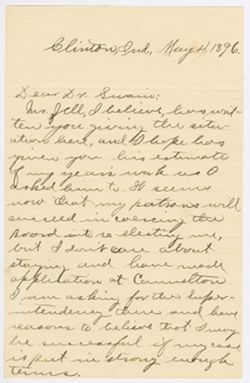 Clinton, Ind., May 4, 1896.
Dear Dr. Swain:
Mr. Jell, I believe, has writ-
ten you giving the situ-
ation here, and I hope has
given you his estimate
of my years work as I
asked him to. It seems
now that my patrons will
succeed in coercing the
board into re-electing me,
but I don't care about
staying and have made
application at Cannelton
I am asking for the super-
intendency there and have
reasons to believe that I may
be successful if my case
is put in strong enough
terms.